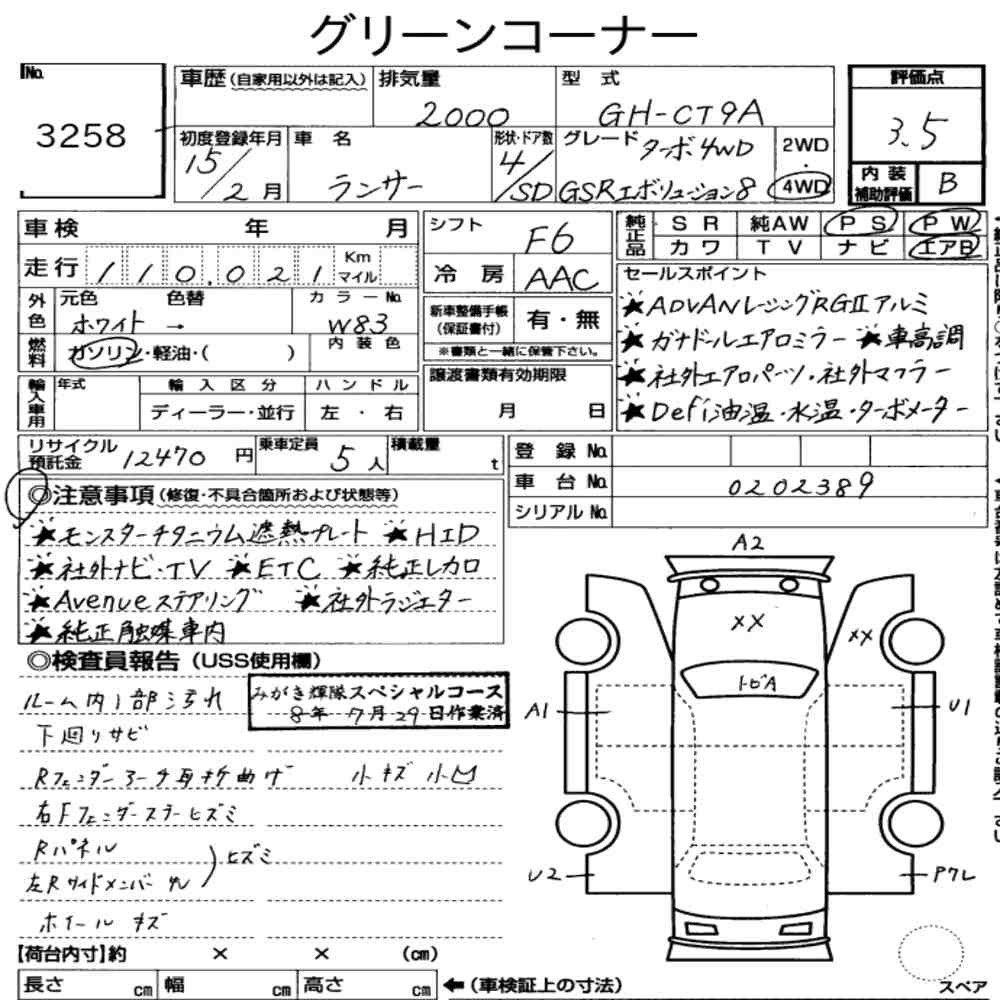 グリーンコーナー
No. 3258
車歴(自家用以外は記入) 排気量 2000 型式 GH-CT9A 評価点 3.5
初度登録年月 15/2月 車名 ランサー 形状・ドア数 4/SD グレード ターボ4WD GSRエボリューション8 2WD・4WD 内装補助評価 B
車検 年 月 シフト F6 純正品 SR 純AW PS PW
カワ TV ナビ エアB
走行 110,021 Km マイル 冷房 AAC
外色 元色 ホワイト 色替 → カラーNo. W83 新車整備手帳(保証書付) 有・無
※書類と一緒に保管下さい。
燃料 ガソリン・軽油・( ) 内装色
輸入車用 年式 輸入区分 ディーラー・並行 ハンドル 左・右 譲渡書類有効期限 月 日
セールスポイント
★ADVANレーシングRGⅡアルミ
★ガナドールエアロミラー ★車高調
★社外エアロパーツ・社外マフラー
★Defi油温・水温・ターボメーター
リサイクル預託金 12470円 乗車定員 5人 積載量 t
登録No.
車台No. 0202389
シリアルNo.
◎注意事項(修復・不具合箇所および状態等)
★モンスターチタニウム遮熱プレート ★HID
★社外ナビ・TV ★ETC ★純正レカロ
★Avenueステアリング ★社外ラジエター
★純正触媒車内
◎検査員報告(USS使用欄)
みがき輝隊スペシャルコース
8年 7月29日作業済
ルーム内1部汚れ
下回りサビ
Rフェンダーアーチ耳折曲げ 小キズ 小凹
右Fフェンダーステーヒズミ
Rパネル
左Rサイドメンバー 先 ) ヒズミ
ホイールキズ
A2
XX
XX
トビA
A1
U1
U2
Pクレ
スペア
【荷台内寸】約 × × (cm)
長さ cm 幅 cm 高さ cm ←(車検証上の寸法)